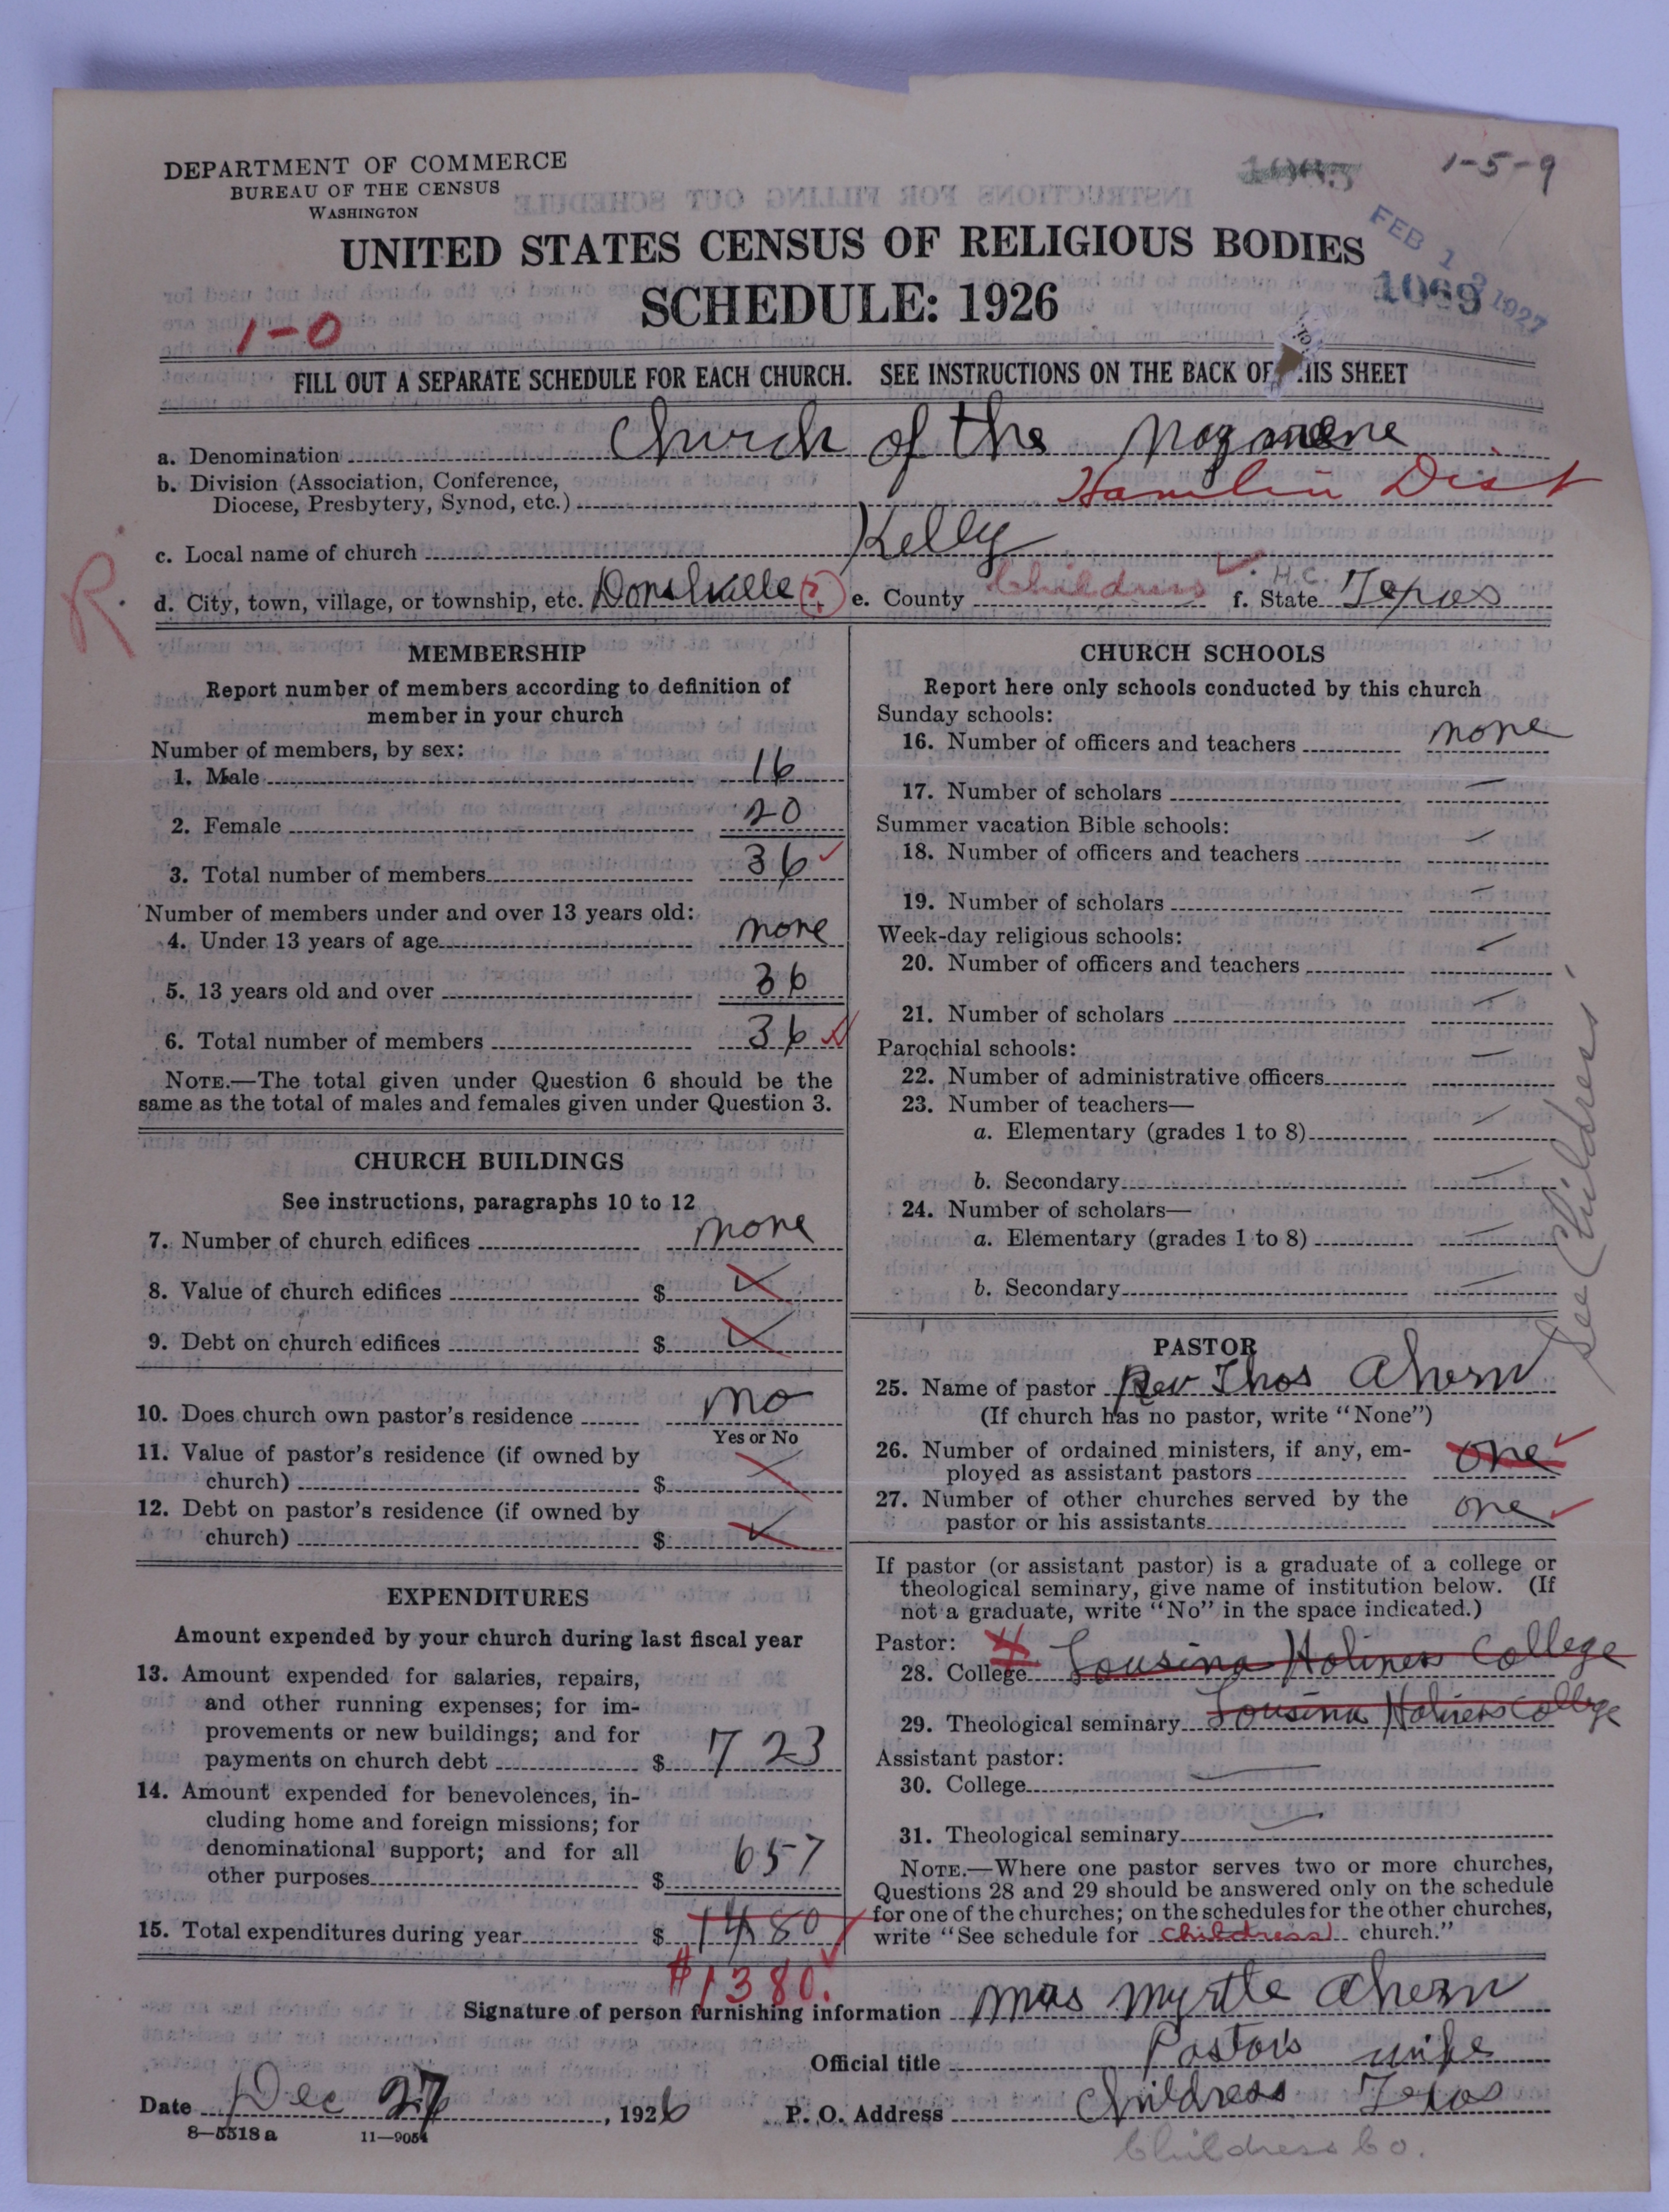 DEPARTMENT OF COMMERCE
BUREAU OF THE CENSUS
WASHINGTON
1-5-9
FEB 1 2 1927
1069
UNITED STATES CENSUS OF RELIGIOUS BODIES
SCHEDULE: 1926
1-0
FILL OUT A SEPARATE SCHEDULE FOR EACH CHURCH. SEE INSTRUCTIONS ON THE BACK OF THIS SHEET
a. Denomination Church of the
b. Division (Association, Conference,
Diocese, Presbytery, Synod, etc.) Hamlin Dist
c. Local name of church Kelly
R.
d. City, town, village, or township, etc. (?) e. County Childress H.C. f. State Texas
MEMBERSHIP
Report number of members according to definition of
member in your church
Number of members, by sex:
1. Male 16
2. Female 20
3. Total number of members 36
Number of members under and over 13 years old:
4. Under 13 years of age none
5. 13 years old and over 36
6. Total number of members 36
NOTE.—The total given under Question 6 should be the
same as the total of males and females given under Question 3.
CHURCH BUILDINGS
See instructions, paragraphs 10 to 12
7. Number of church edifices none
8. Value of church edifices $
9. Debt on church edifices $
10. Does church own pastor's residence no
Yes or No
11. Value of pastor's residence (if owned by
church) $
12. Debt on pastor's residence (if owned by
church) $
EXPENDITURES
Amount expended by your church during last fiscal year
13. Amount expended for salaries, repairs,
and other running expenses; for im-
provements or new buildings; and for
payments on church debt $ 723
14. Amount expended for benevolences, in-
cluding home and foreign missions; for
denominational support; and for all
other purposes $ 657
15. Total expenditures during year $ 1480
$1380.
CHURCH SCHOOLS
Report here only schools conducted by this church
Sunday schools:
16. Number of officers and teachers none
17. Number of scholars —
Summer vacation Bible schools:
18. Number of officers and teachers —
19. Number of scholars —
Week-day religious schools:
20. Number of officers and teachers —
21. Number of scholars —
Parochial schools:
22. Number of administrative officers —
23. Number of teachers—
a. Elementary (grades 1 to 8) —
b. Secondary —
24. Number of scholars—
a. Elementary (grades 1 to 8) —
b. Secondary —
See Childress
PASTOR
25. Name of pastor Rev Thos Ahern
(If church has no pastor, write "None")
26. Number of ordained ministers, if any, em-
ployed as assistant pastors one
27. Number of other churches served by the
pastor or his assistants one
If pastor (or assistant pastor) is a graduate of a college or
theological seminary, give name of institution below. (If
not a graduate, write "No" in the space indicated.)
Pastor:
28. College Lousina Holiness College
29. Theological seminary Lousina Holiness College
Assistant pastor:
30. College —
31. Theological seminary —
NOTE.—Where one pastor serves two or more churches,
Questions 28 and 29 should be answered only on the schedule
for one of the churches; on the schedules for the other churches,
write "See schedule for Childress church."
Signature of person furnishing information Mrs Myrtle Ahern
Official title Pastors wife
Date Dec 27, 1926 P. O. Address Childress Texas
8—5518a 11—9054
Childress Co.